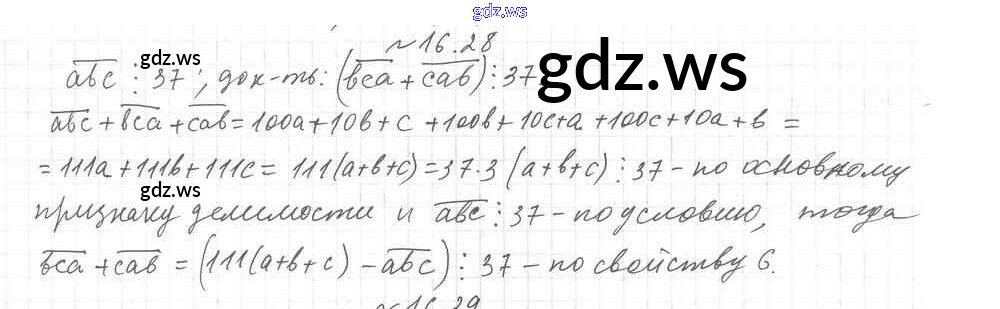 gdz.ws
№16.28
gdz.ws gdz.ws
abc ⋮ 37; док-ть: (bca + cab) ⋮ 37
abc + bca + cab = 100a + 10b + c + 100b + 10c + a + 100c + 10a + b =
= 111a + 111b + 111c = 111(a+b+c) = 37·3 (a+b+c) ⋮ 37 - по основному
gdz.ws gdz.ws
признаку делимости и abc ⋮ 37 - по условию, тогда
bca + cab = (111(a+b+c) - abc) ⋮ 37 - по свойству 6.
№16.29